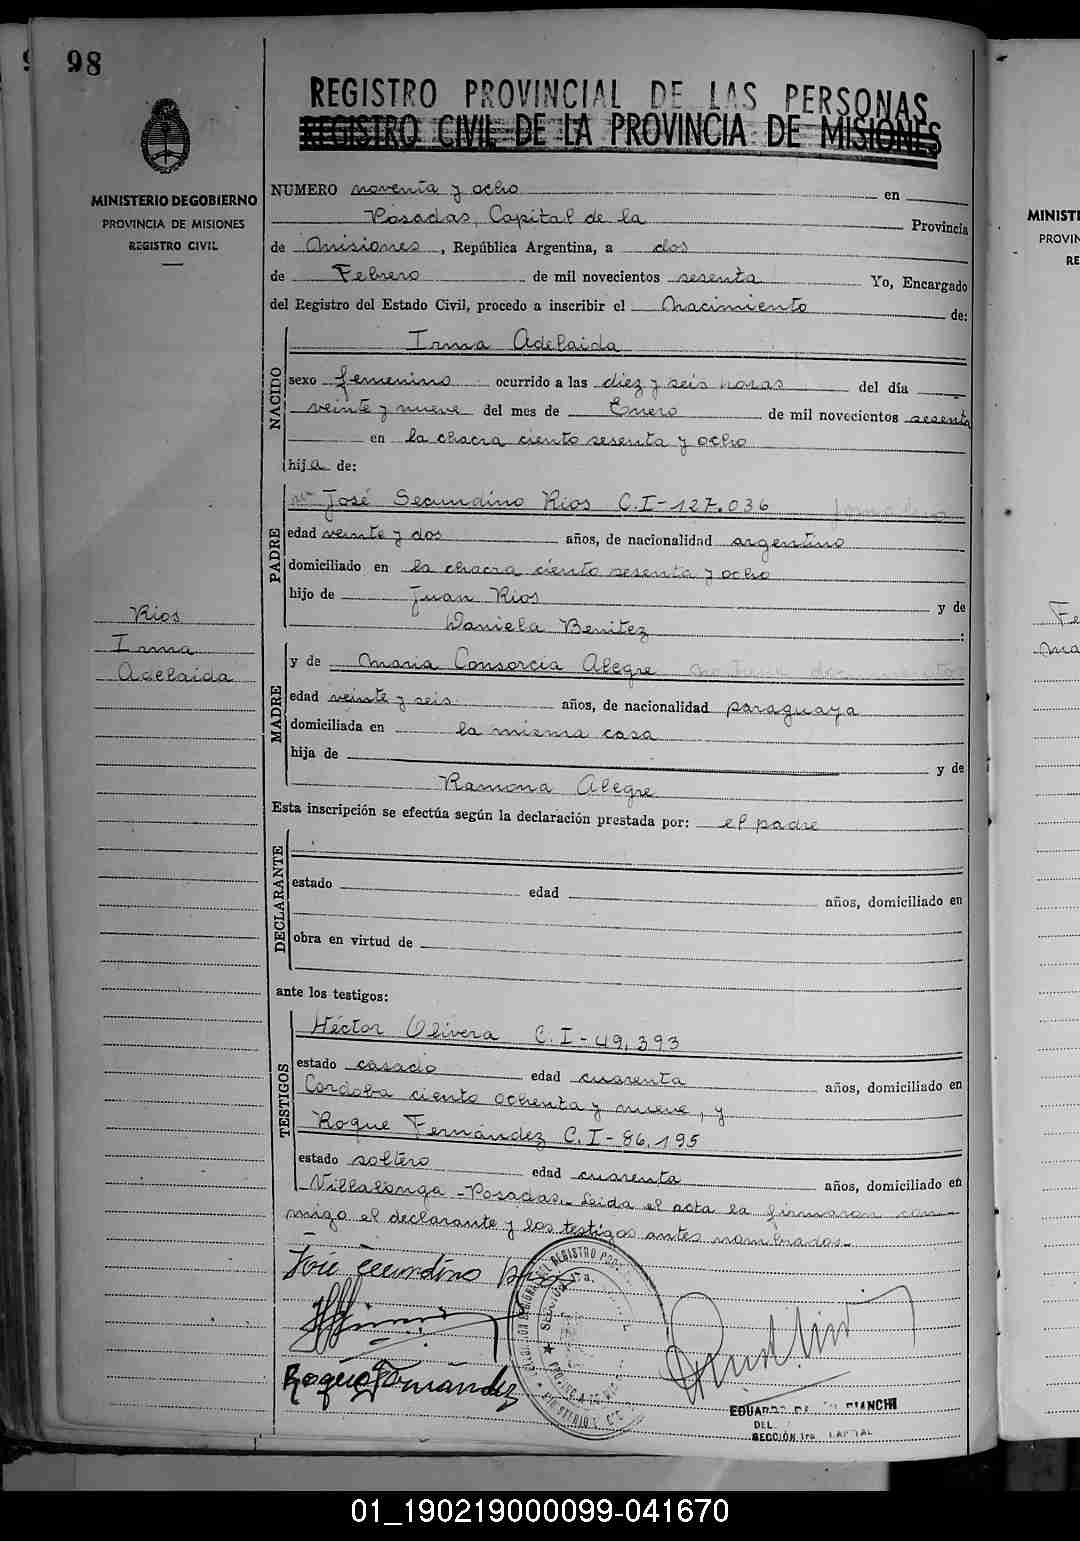 98
REGISTRO PROVINCIAL DE LAS PERSONAS
REGISTRO CIVIL DE LA PROVINCIA DE MISIONES
MINISTERIO DE GOBIERNO
PROVINCIA DE MISIONES
REGISTRO CIVIL
NUMERO noventa y ocho en
Posadas, Capital de la Provincia
de Misiones, República Argentina, a dos
de Febrero de mil novecientos sesenta Yo, Encargado
del Registro del Estado Civil, procedo a inscribir el Nacimiento de:
NACIDO
Irma Adelaida
sexo femenino ocurrido a las diez y seis horas del día
veinte y nueve del mes de Enero de mil novecientos sesenta
en la chacra ciento sesenta y ocho
hija de:
PADRE
José Secundino Rios C.I-127.036 jornalero
edad veinte y dos años, de nacionalidad argentino
domiciliado en la chacra ciento sesenta y ocho
hijo de Juan Rios y de
Daniela Benitez :
Rios
Irma
Adelaida
MADRE
y de Maria Consorcia Alegre no tiene documentos
edad veinte y seis años, de nacionalidad paraguaya
domiciliada en la misma casa
hija de y de
Ramona Alegre
Esta inscripción se efectúa según la declaración prestada por: el padre
DECLARANTE
estado edad años, domiciliado en
obra en virtud de
ante los testigos:
TESTIGOS
Héctor Olivera C.I-49.393
estado casado edad cuarenta años, domiciliado en
Cordoba ciento ochenta y nueve, y
Roque Fernández C.I-86.195
estado soltero edad cuarenta años, domiciliado en
Villalonga - Posadas. Leida el acta la firmaron con-
migo el declarante y los testigos antes nombrados.
José Secundino Rios
Roque Fernández
EDUARDO BIANCHI
DEL
SECCIÓN 1ra CAPITAL
MINISTE
PROVIN
RE
01_190219000099-041670